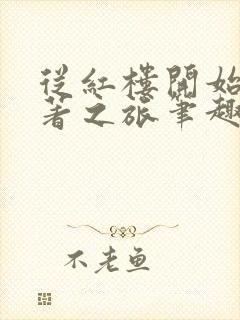 從紅樓開始
著之旅筆趣
不老魚